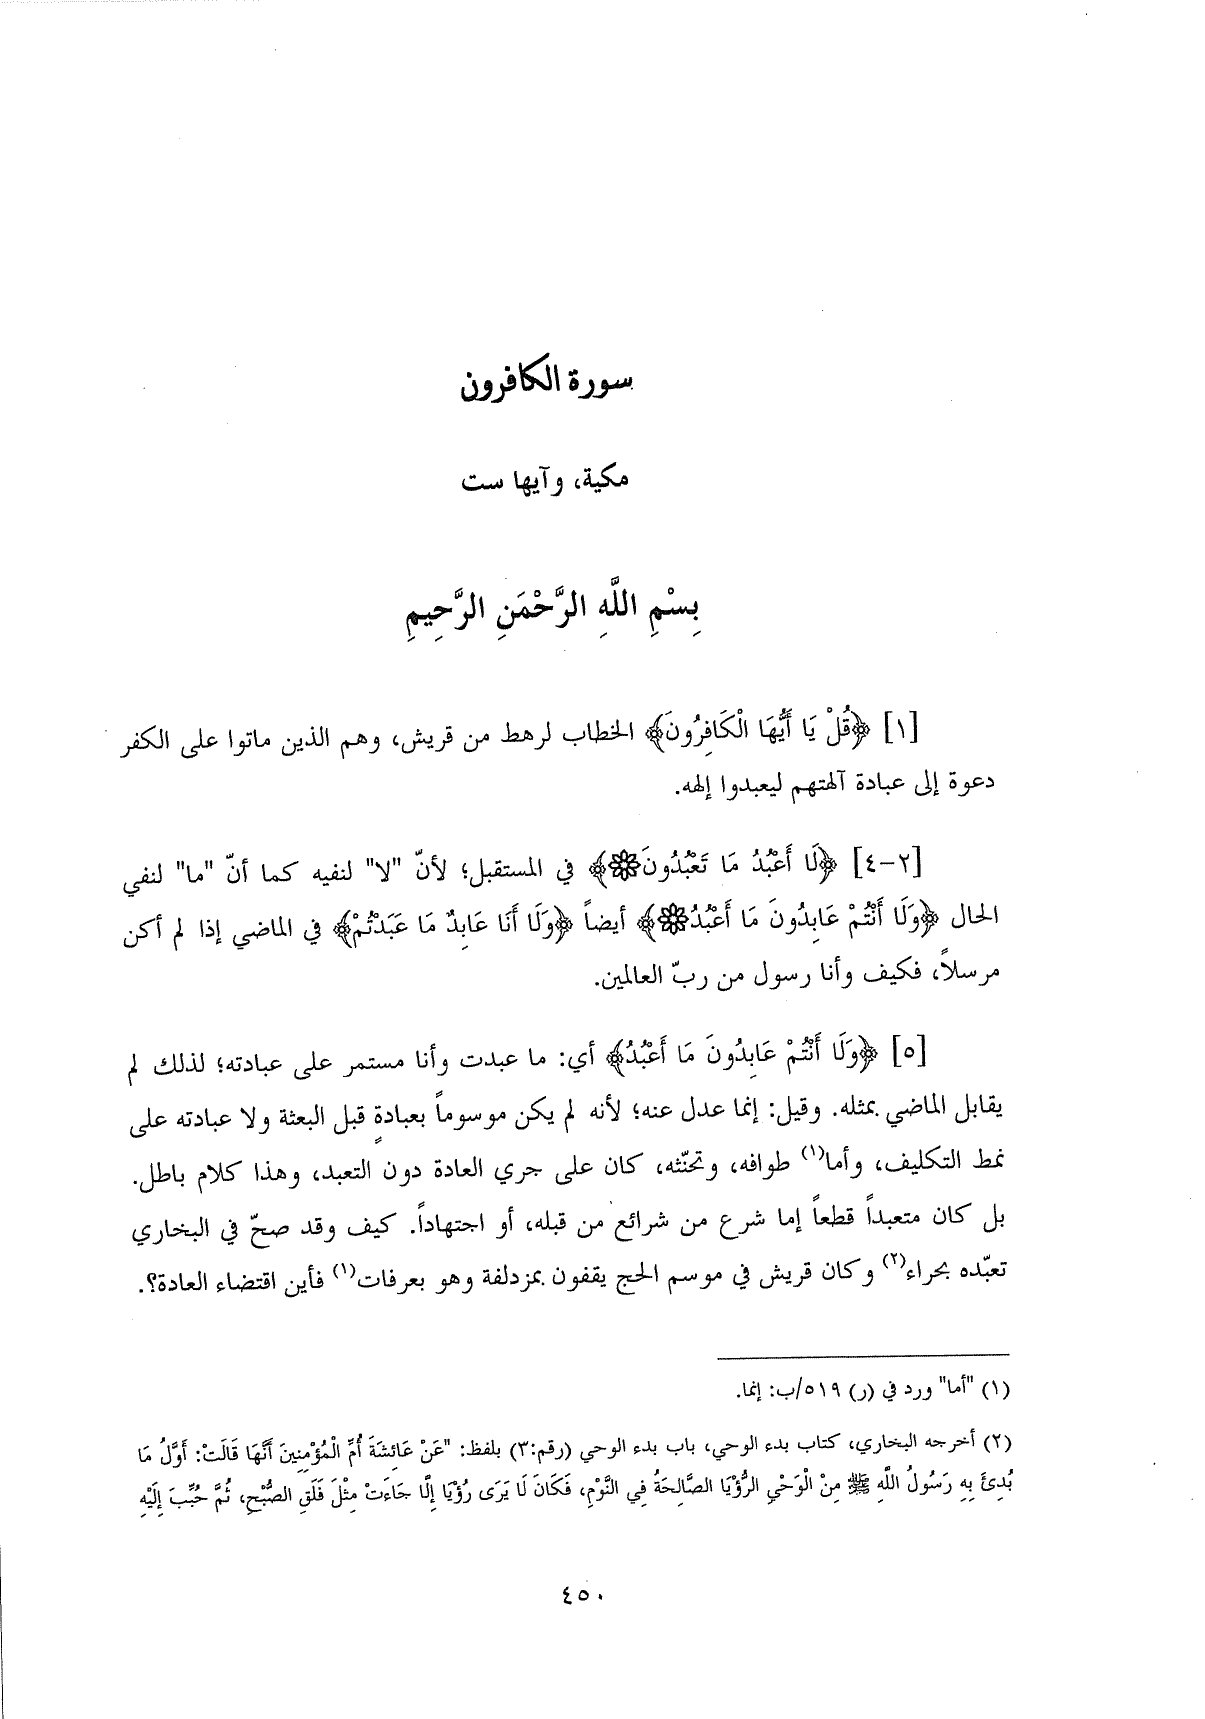 سورة الكافرون
مكية، وآيها ست
بِسْمِ اللَّهِ الرَّحْمَنِ الرَّحِيمِ
[١] ﴿قُلْ يَا أَيُّهَا الْكَافِرُونَ﴾ الخطاب لرهط من قريش، وهم الذين ماتوا على الكفر
دعوة إلى عبادة آلهتهم ليعبدوا إلهه.
[٢-٤] ﴿لَا أَعْبُدُ مَا تَعْبُدُونَ۞﴾ في المستقبل؛ لأنّ "لا" لنفيه كما أنّ "ما" لنفي
الحال ﴿وَلَا أَنْتُمْ عَابِدُونَ مَا أَعْبُدُ۞﴾ أيضاً ﴿وَلَا أَنَا عَابِدٌ مَا عَبَدْتُمْ﴾ في الماضي إذا لم أكن
مرسلاً، فكيف وأنا رسول من ربّ العالمين.
[٥] ﴿وَلَا أَنْتُمْ عَابِدُونَ مَا أَعْبُدُ﴾ أي: ما عبدت وأنا مستمر على عبادته؛ لذلك لم
يقابل الماضي بمثله. وقيل: إنما عدل عنه؛ لأنه لم يكن موسوماً بعبادةٍ قبل البعثة ولا عبادته على
نمط التكليف، وأما(١) طوافه، وتحنّثه، كان على جري العادة دون التعبد، وهذا كلام باطل.
بل كان متعبداً قطعاً إما شرع من شرائع من قبله، أو اجتهاداً. كيف وقد صحّ في البخاري
تعبّده بحراء(٢) وكان قريش في موسم الحج يقفون بمزدلفة وهو بعرفات(١) فأين اقتضاء العادة؟.
(١) "أما" ورد في (ر) ٥١٩/ب: إنما.
(٢) أخرجه البخاري، كتاب بدء الوحي، باب بدء الوحي (رقم:٣) بلفظ: "عَنْ عَائِشَةَ أُمِّ الْمُؤْمِنِينَ أَنَّهَا قَالَتْ: أَوَّلُ مَا
بُدِئَ بِهِ رَسُولُ اللَّهِ ﷺ مِنْ الْوَحْيِ الرُّؤْيَا الصَّالِحَةُ فِي النَّوْمِ، فَكَانَ لَا يَرَى رُؤْيَا إِلَّا جَاءَتْ مِثْلَ فَلَقِ الصُّبْحِ، ثُمَّ حُبِّبَ إِلَيْهِ
٤٥٠